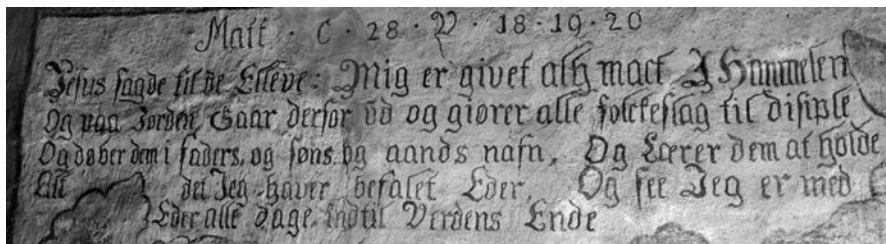 Matt · C · 28 · V · 18 · 19 · 20
Jesus sagde til de Elleve: Mig er givet alh mact I Himmelen
Og paa Jorden, Gaar derfor ud og giører alle folckeslag til disiple
Og døber dem i faders, og søns, og aands nafn, Og Lærer dem at holde
Alt det Jeg haver befalet Eder, Og see Jeg er med
Eder alle dage indtil Verdens Ende